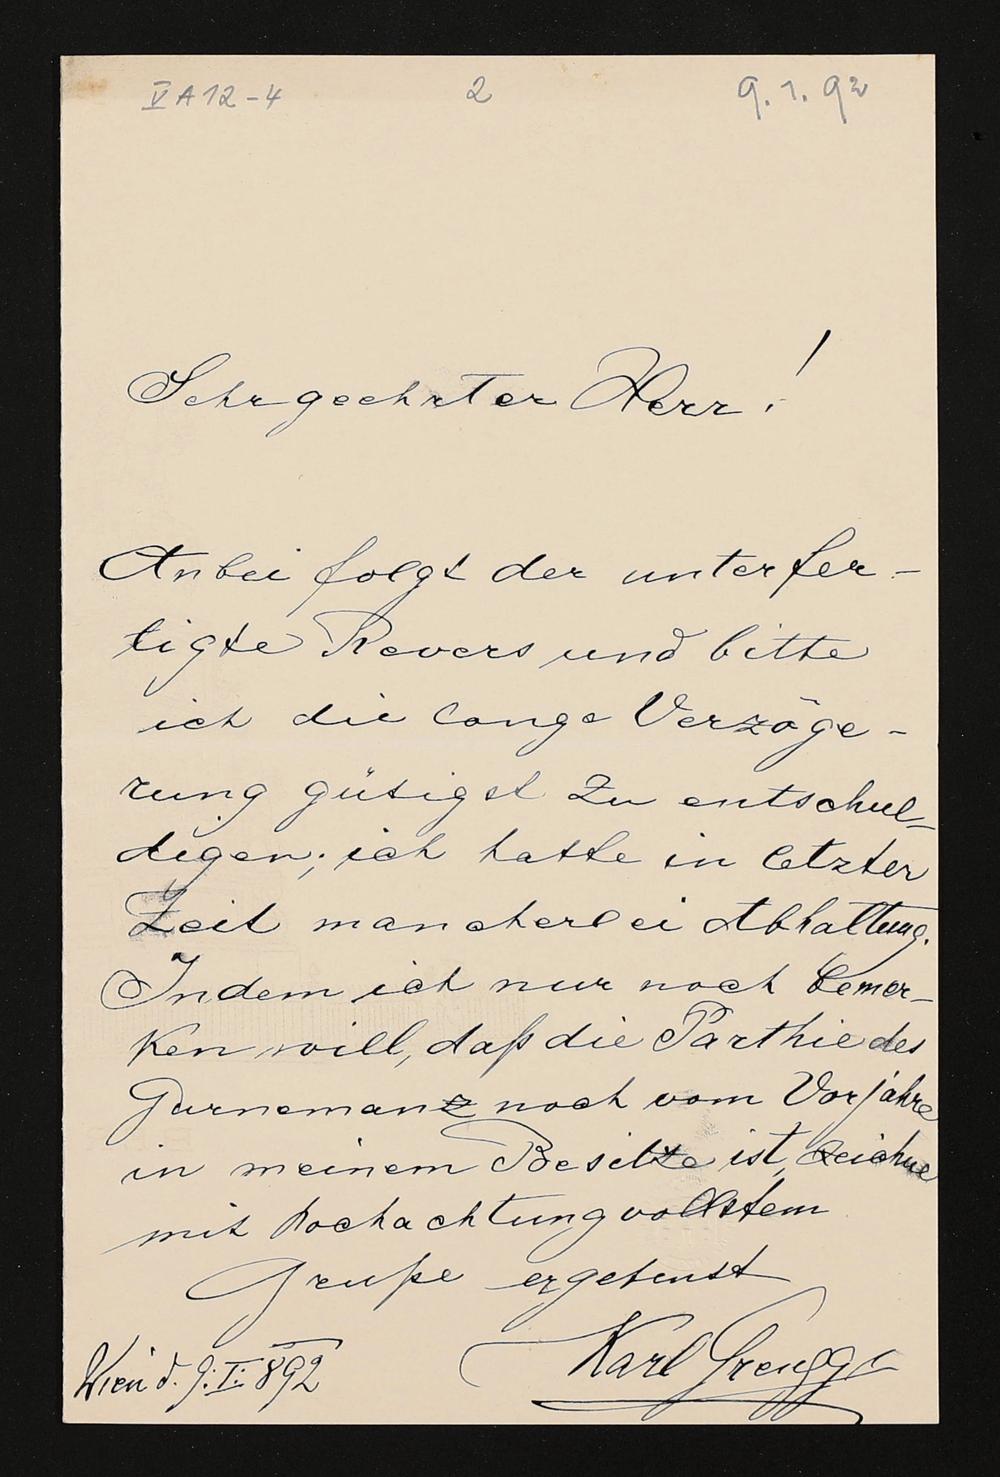 V A 12 - 4 2 9. 1. 92
Sehrgeehrter Herr!
Anbei folgt der unterfer-
tigte Revers und bitte
ich die lange Verzöge-
rung gütigst zu entschul-
digen; ich hatte in letzter
Zeit mancherlei Abhaltung.
Indem ich nur noch bemer-
ken will, daß die Parthie des
Gurnemanz noch vom Vorjahre
in meinem Besitze ist, zeichne
mit hochachtungvollstem
Gruße ergebenst
Karl Grengg
Wien d. 9: I: 892